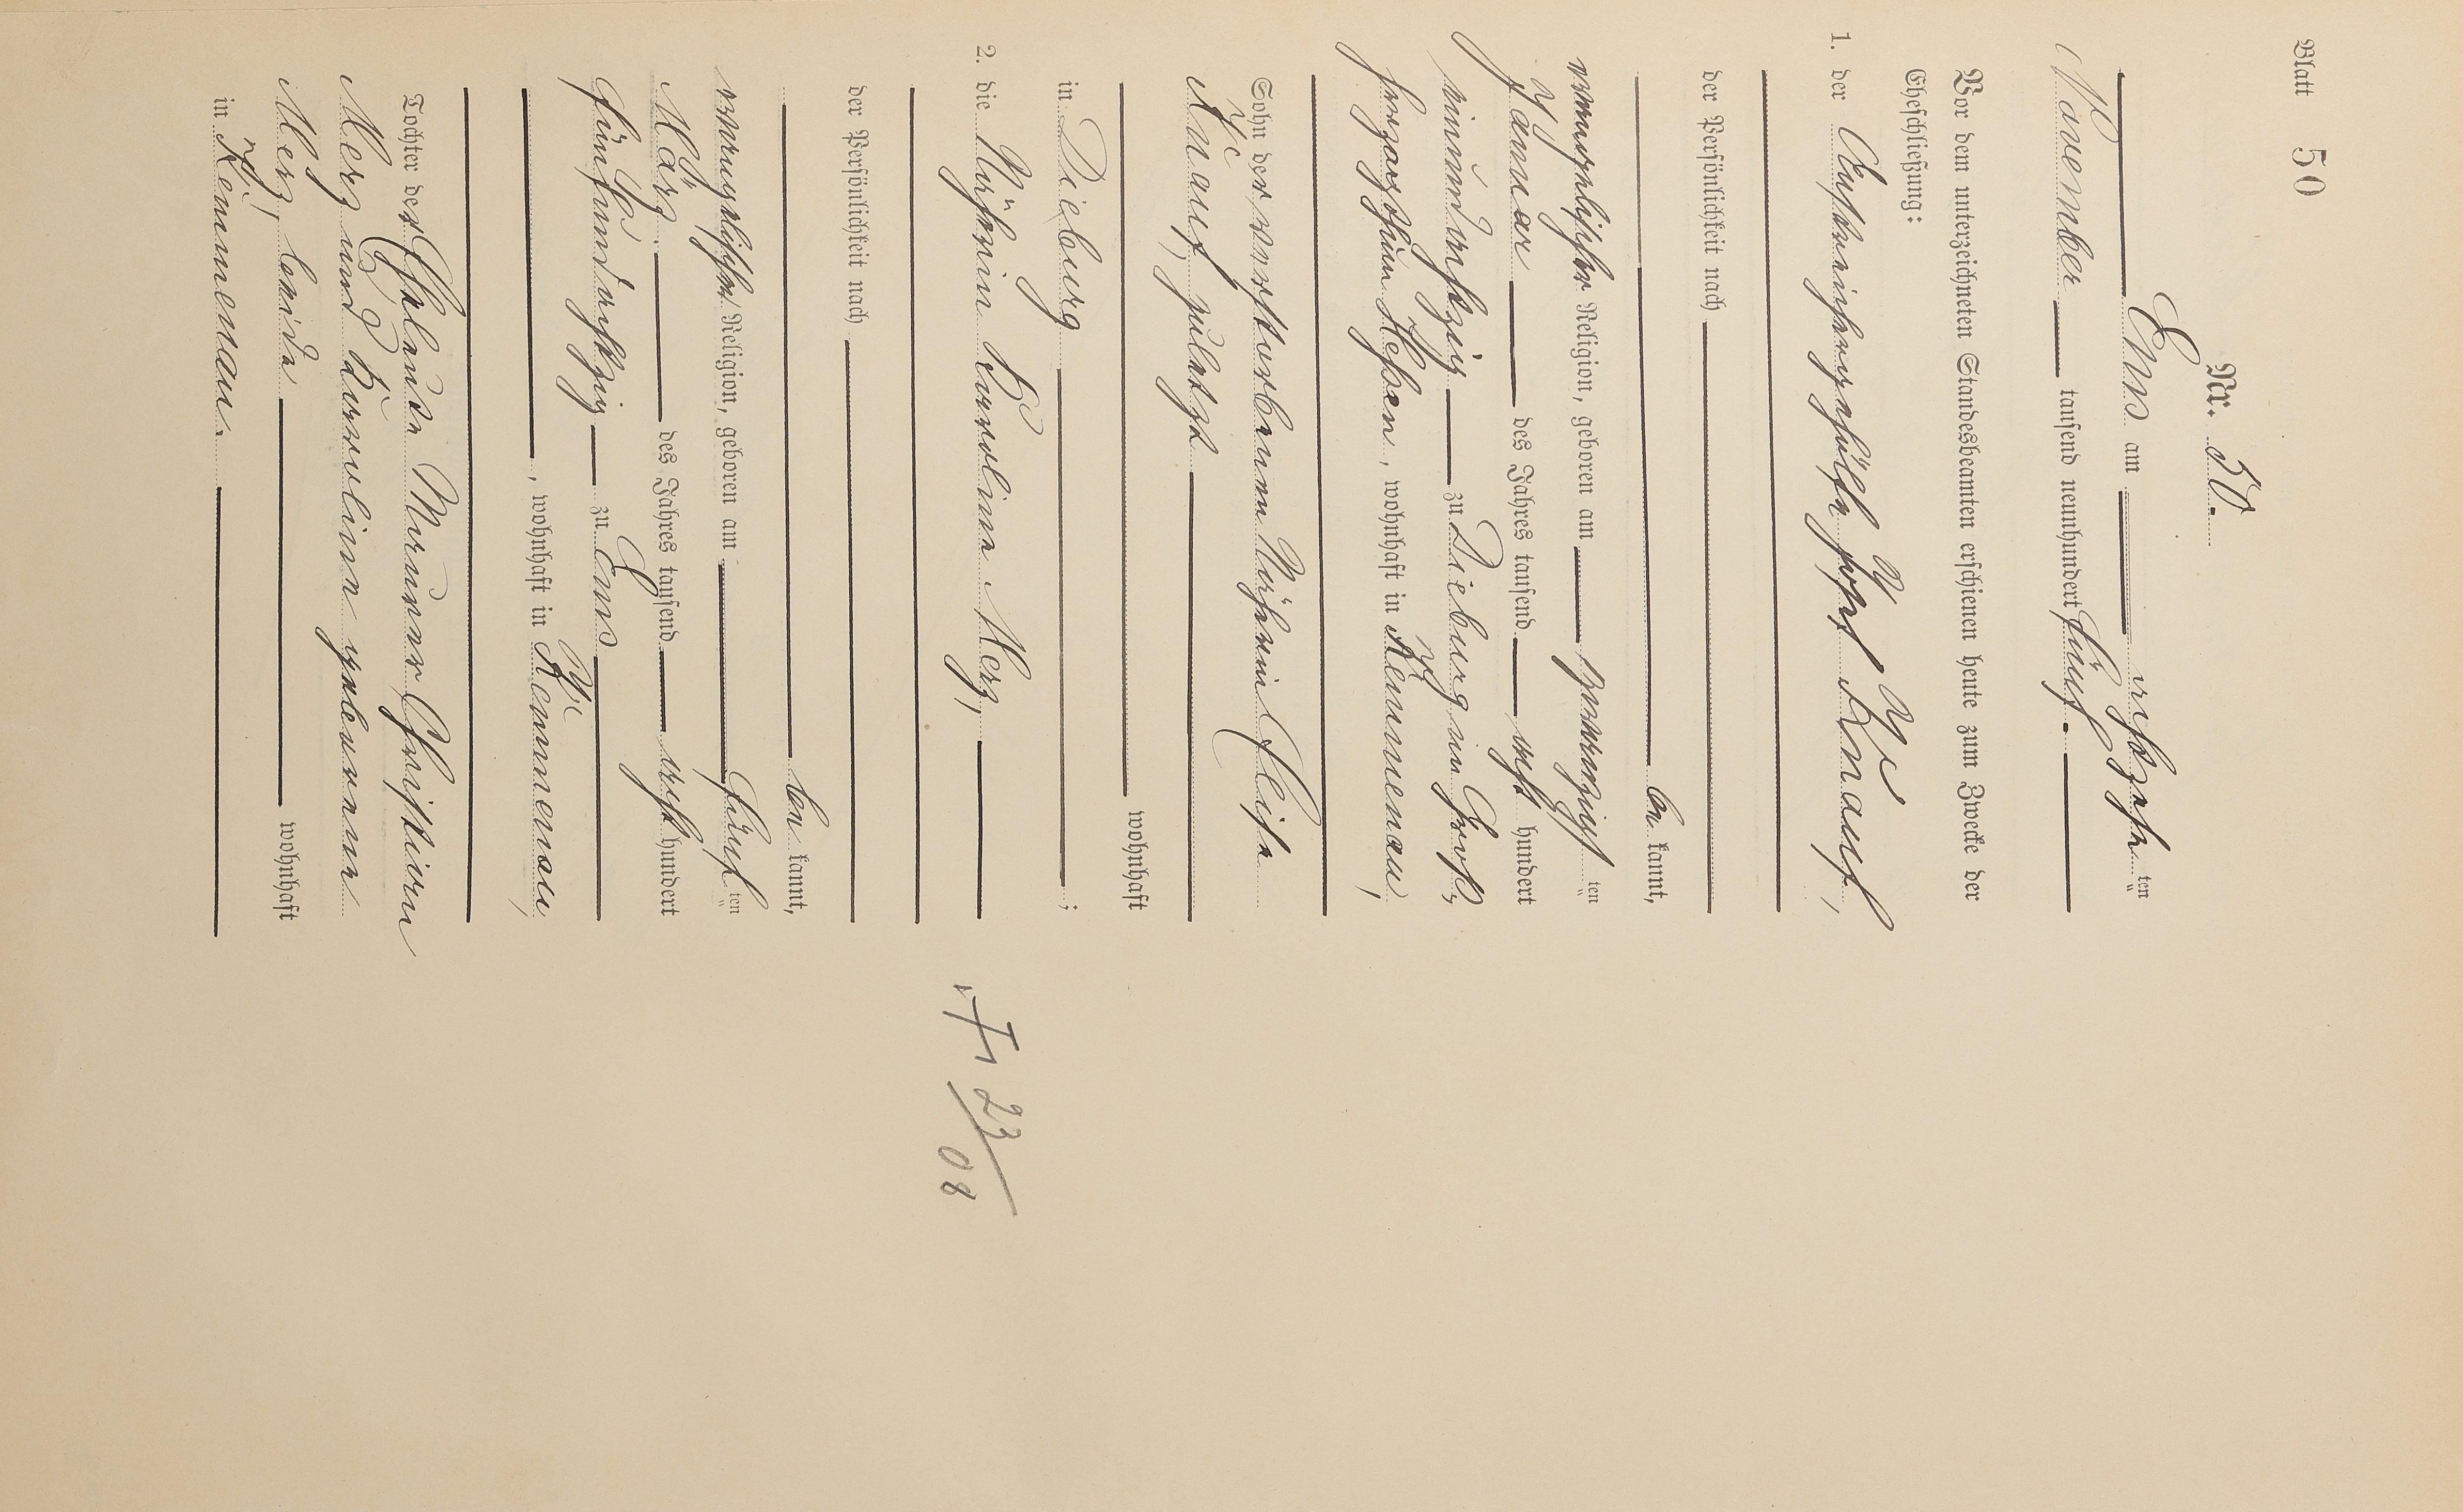 Blatt 50
Nr. 50.
Ems am achtzehnten
November tausend neunhundert fünf.
Vor dem unterzeichneten Standesbeamten erschienen heute zum Zwecke der
Eheschließung:
1. der Knauf,
der Persönlichkeit nach
be kannt,
evangelischer Religion, geboren am zwanzigsten
Januar des Jahres tausend acht hundert
einundachtzig zu Dieburg im Groß-
herzogthum Hessen, wohnhaft in Kemmenau,
Sohn der verstorbenen Näherin Elise
Knauf, zuletzt
wohnhaft
in Dieburg ;
2. die Näherin Karoline Merz,
der Persönlichkeit nach
be kannt,
evangelischer Religion, geboren am fünften
März des Jahres tausend acht hundert
fünfundachtzig zu Ems
, wohnhaft in Kemmenau,
Tochter der Eheleute Maurer Christian
Merz und Karoline geborenen
Merz, beide wohnhaft
in Kemmenau.
23/08